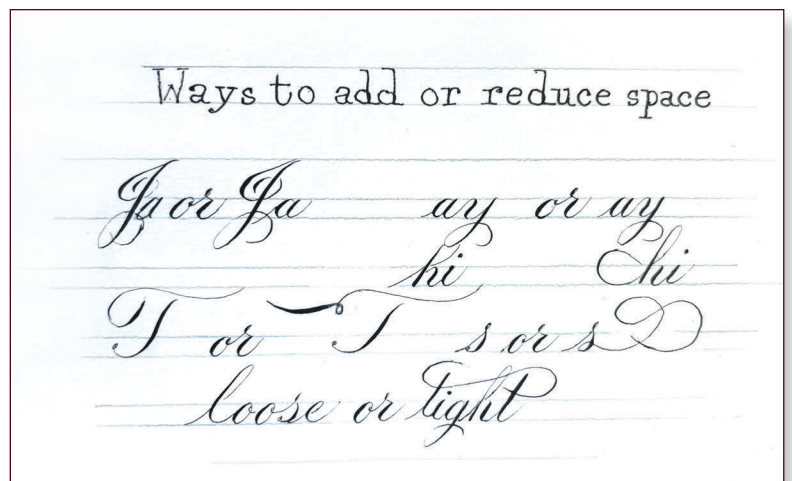 Ways to add or reduce space
Ja or Ja ay or ay
hi hi
T or T s or s
loose or tight